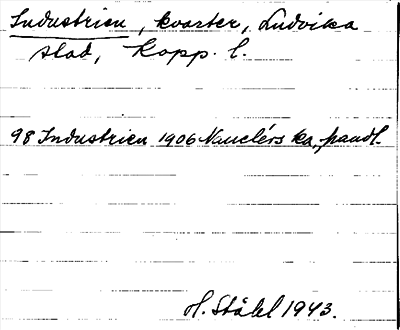 Industrien, kvarter, Ludvika
stad, Kopp. l.
98 Industrien 1906 Nauclérs ka, handl.
H. Ståhl 1943.